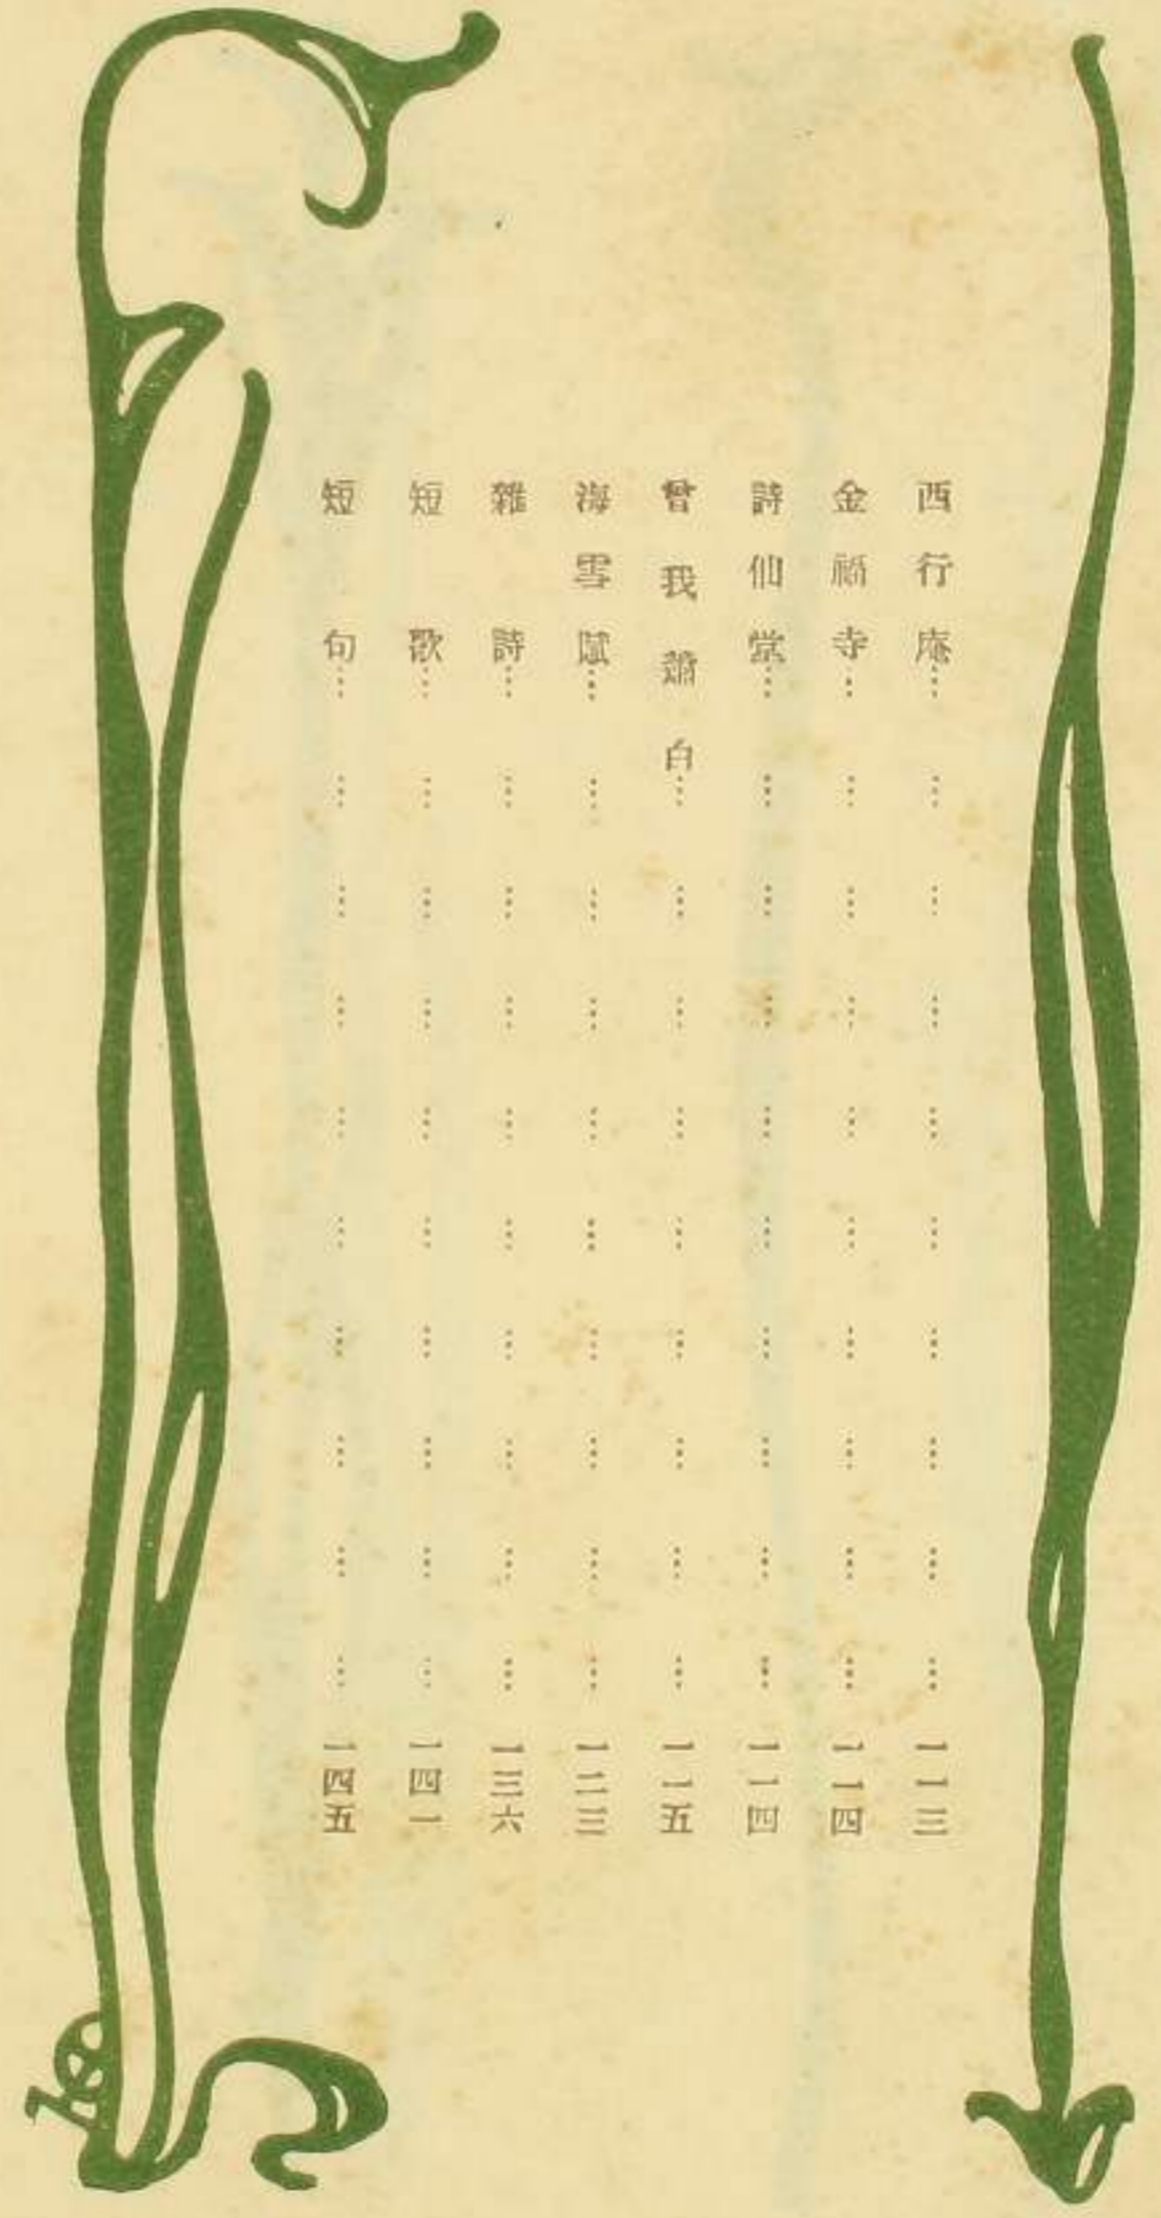 西行庵…………………………一一三
金福寺…………………………一一四
詩仙堂…………………………一一四
曾我蕭白…………………………一一五
海雪賦…………………………一二三
雜詩…………………………一三六
短歌…………………………一四一
短句…………………………一四五